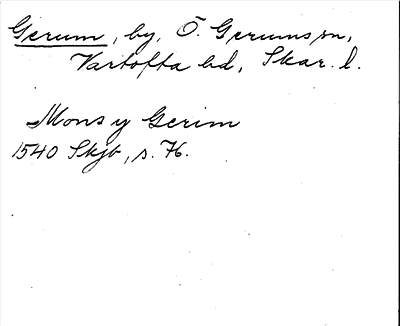 Gerum, by, Ö. Gerums sn,
Vartofta hd, Skar. l.
Mons y Gerim
1540 Skjb, s. 76.